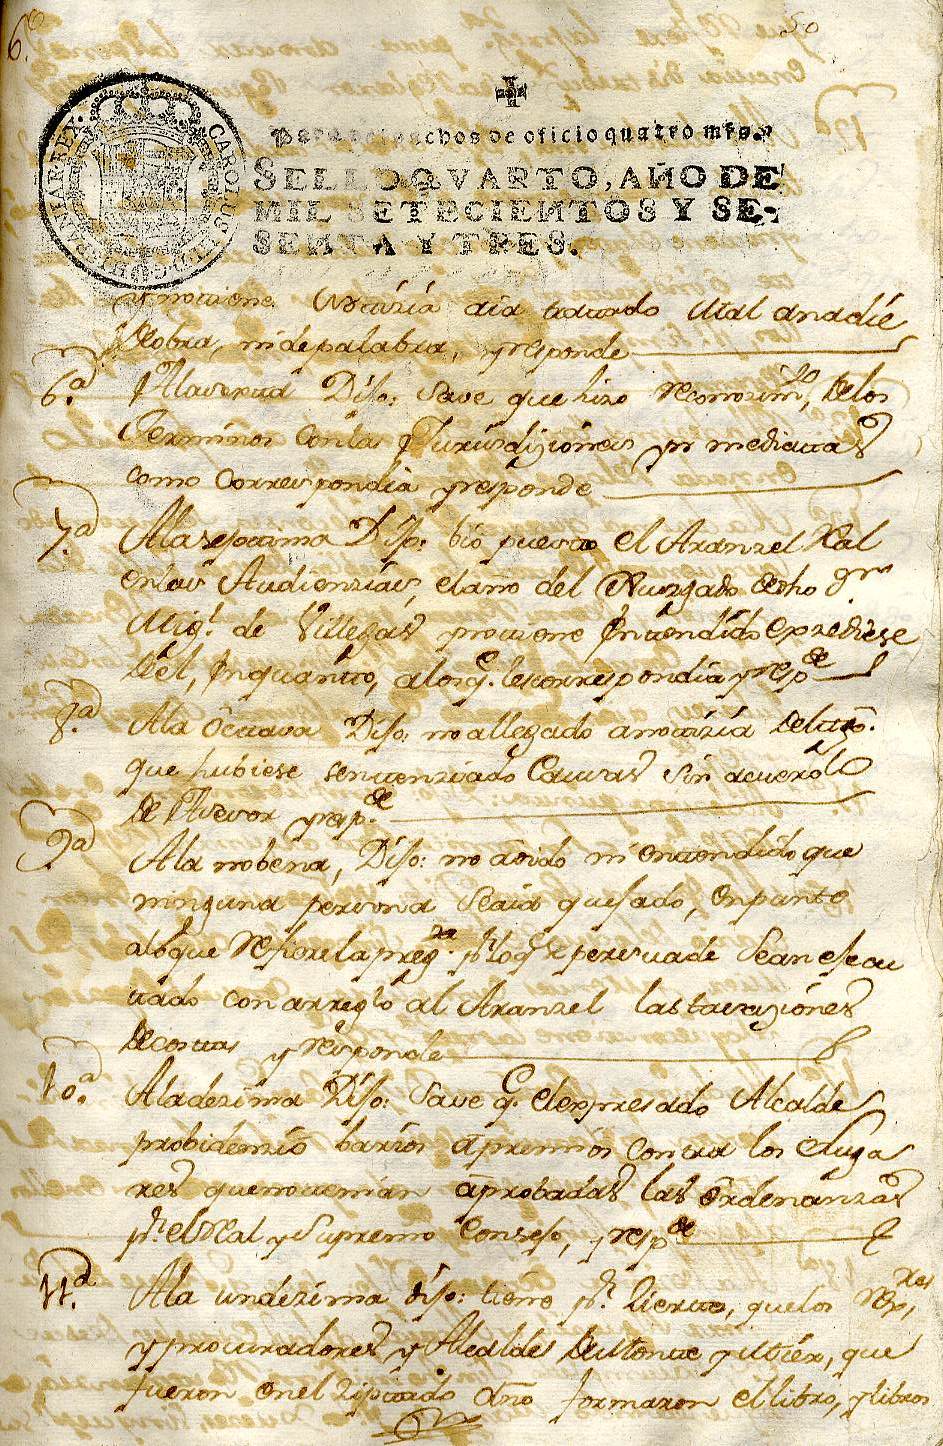 6.
50
CAROLUS III D G HISPANIAR REX
Para despachos de oficio quatro mrs.
SELLO QVARTO, AÑO DE
MIL SETECIENTOS Y SE-
SENTA Y TRES.
y no tiene noticia aia tratado Mal a nadie
de obra, ni de palabra, y responde
6.ª A la sexta Dijo: Save que hizo reconozim.to de los
Terminos con las Jurisdiziones ynmediatas
como correspondia y responde
7.ª A la septima Dijo: bio puesto el Aranzel Real
en las Audienzias, el año del Juzgado de dho Dn
Mig.l de Villegas y no tiene entendido expediese
del, en quanto, a los q.e les correspondia y resp.de
8.ª A la Octava Dijo: no a llegado a noticia del tgo.
que hubiese sentenziado Causas sin acuerdo
de Asesor y resp.de
9.ª A la nobena, Dijo: no a oido ni entendido que
ninguna persona se aia quejado, en punto
a lo que refiere la preg.ta p.r lo q.e se persuade sean ejecu
tado con arreglo al Aranzel las tasaziones
de costas y responde
10.ª A la dezima Dijo: Save q.e el expresado Alcalde
probidenzio barios apremios contra los Luga
res que no tenian aprobadas las Ordenanzas
p.r el Real y Supremo Consejo, y resp.de
11.ª A la undezima dijo: tiene p.r zierto, que los
y procuradores y Alcalde de Utonce que
fueron en el zitado año formaron el libro, y libros